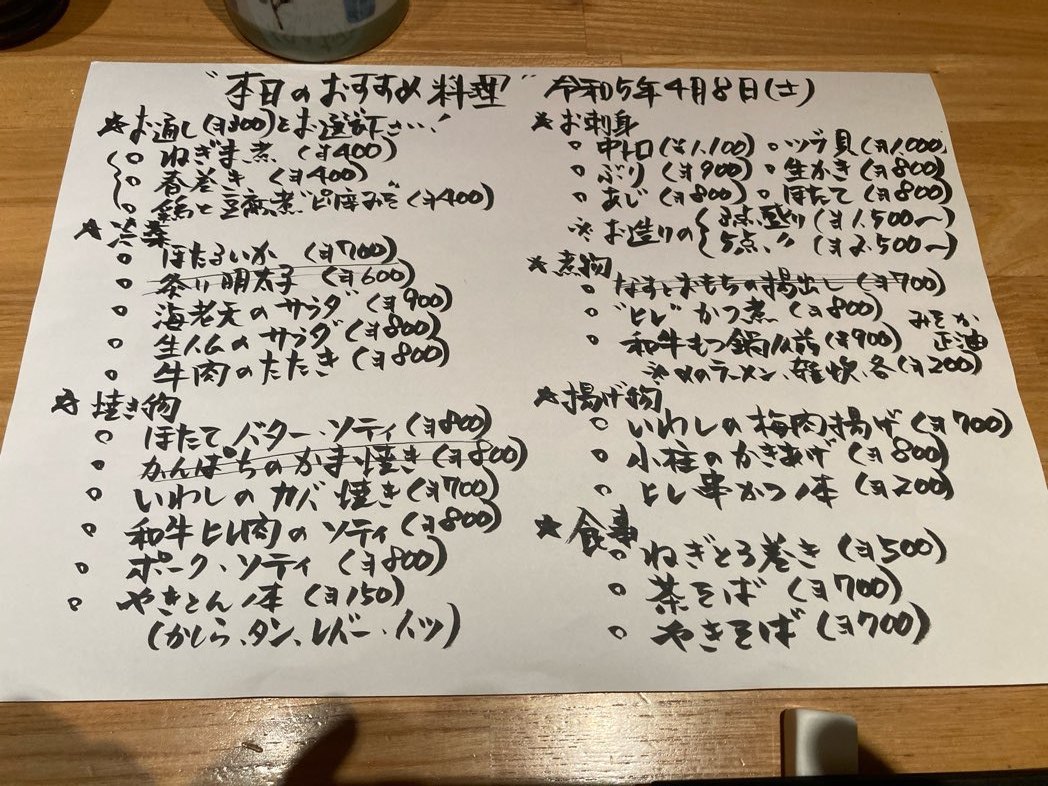 "本日のおすすめ料理" 令和5年4月8日(土)
★お通し(¥300)をお選び下さい!
○ねぎま煮 (¥400)
○春巻き (¥400)
○鶏と豆腐煮ピリ辛みそ(¥400)
★冷菜
○ほたるいか (¥700)
○炙り明太子 (¥600)
○海老天のサラダ (¥900)
○生ハムのサラダ (¥800)
○牛肉のたたき (¥800)
★焼き物
○ほたてバター、ソティ(¥800)
○かんぱちのかま焼き(¥800)
○いわしのカバ焼き(¥700)
○和牛ヒレ肉のソティ(¥800)
○ポーク、ソティ (¥800)
○やきとん1本 (¥150)
(かしら、タン、レバー、ハツ)
★お刺身
○中トロ(¥1,100) ○ツブ貝(¥1,000)
○ぶり (¥900) ○生かき(¥800)
○あじ (¥800) ○ほたて(¥800)
※お造りの 3点盛り(¥1,500〜)
5点〃 (¥2,500〜)
★煮物
○なすとおもちの揚出し(¥700)
○ヒレかつ煮 (¥800)
○和牛もつ鍋1人前(¥900) みそか正油
※〆のラーメン、雑炊、各(¥200)
★揚げ物
○いわしの梅肉揚げ(¥700)
○小柱のかきあげ (¥800)
○ヒレ串かつ1本 (¥200)
★食事
○ねぎとろ巻き (¥500)
○茶そば (¥700)
○やきそば (¥700)